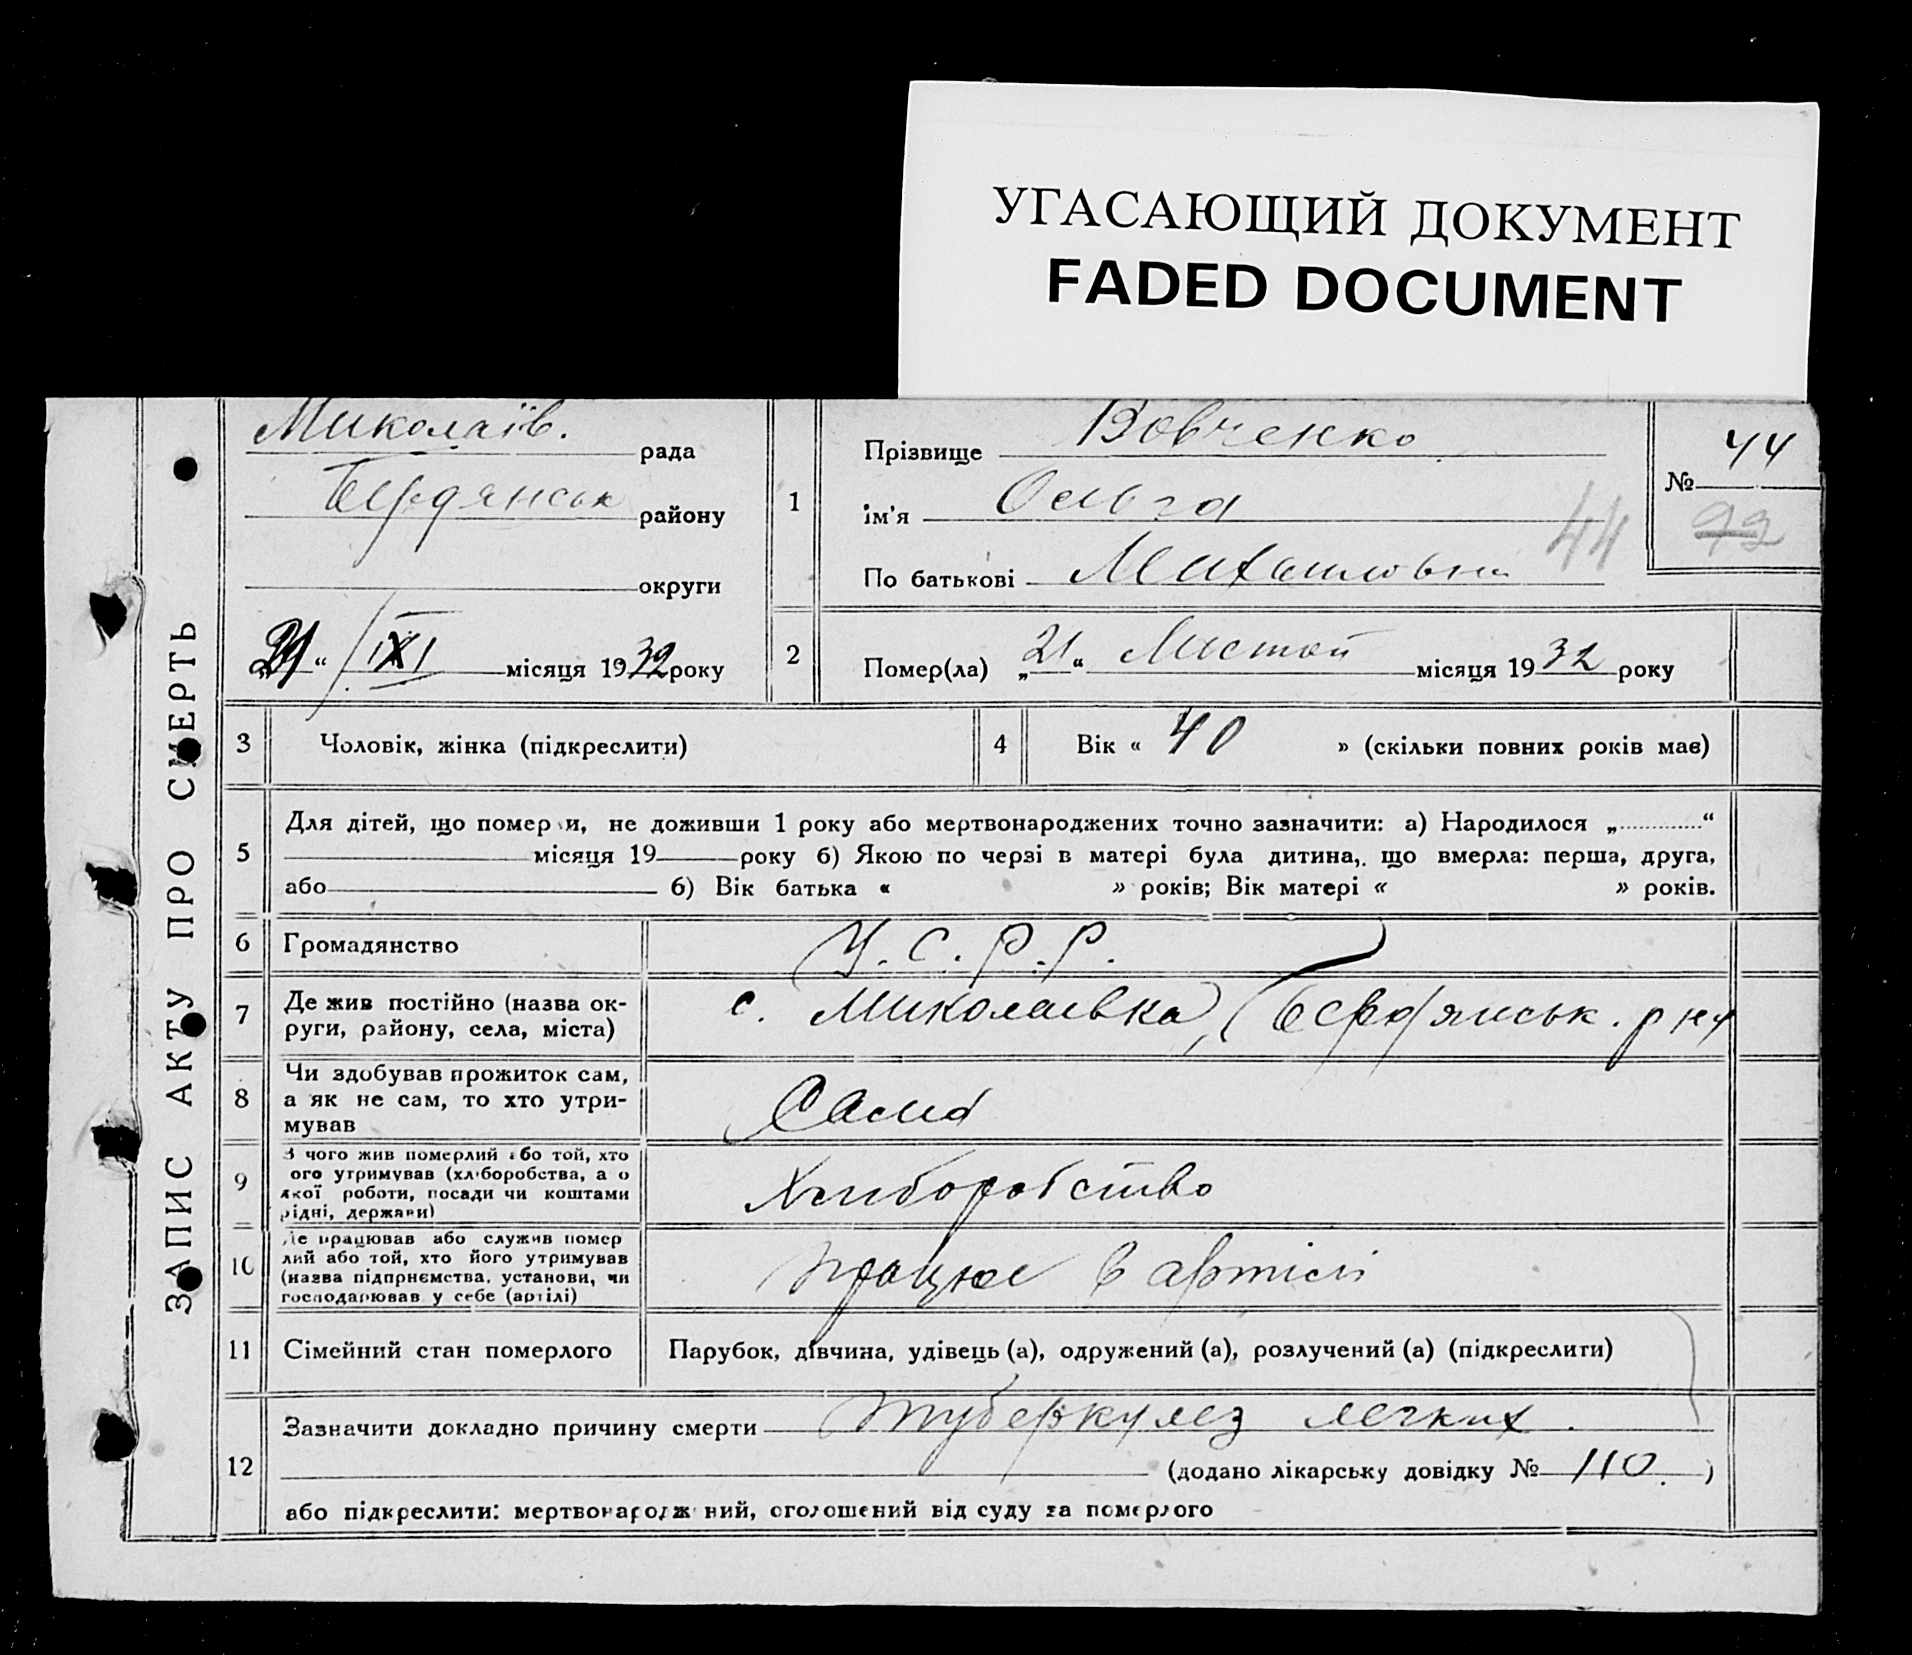 УГАСАЮЩИЙ ДОКУМЕНТ
FADED DOCUMENT
ЗАПИС АКТУ ПРО СМЕРТЬ
Миколаїв. рада
Бердянськ району
округи
“ XI місяця 1932 року
1
Прізвище Вовченко
ім'я Ольга
По батькові Михайловна
№ 44
44
92
2
Помер(ла) „21“ Листоп місяця 1932 року
3 Чоловік, жінка (підкреслити)
4 Вік « 40 » (скільки повних років має)
5
Для дітей, що померли, не доживши 1 року або мертвонароджених точно зазначити: а) Народилося „ “
місяця 19 року б) Якою по черзі в матері була дитина, що вмерла: перша, друга,
або б) Вік батька « » років; Вік матері « » років.
6 Громадянство У.С.Р.Р.
7
Де жив постійно (назва ок-
руги, району, села, міста)
с. Миколаївка, Бердянськ. р-ну
8
Чи здобував прожиток сам,
а як не сам, то хто утри-
мував
Сама
9
З чого жив померлий або той, хто
ого утримував (хліборобства, а о
якої роботи, посади чи коштами
рідні, держави)
Хлиборобство
10
Де працював або служив помер
лий або той, хто його утримував
(назва підприємства, установи, чи
господарював у себе (артілі)
працює в артілі
11 Сімейний стан померлого
Парубок, дівчина, удівець (а), одружений (а), розлучений (а) (підкреслити)
12
Зазначити докладно причину смерти туберкулез легких.
(додано лікарську довідку № 110.)
або підкреслити: мертвонароджений, оголошений від суду за померлого